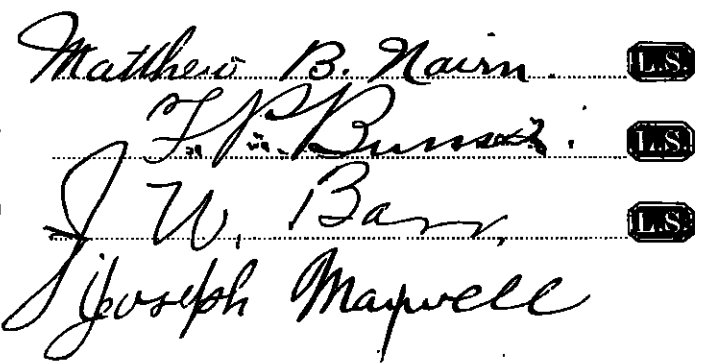 Matthew B. Nairn. L.S.
F. P. L.S.
J. W. Barr, L.S.
Joseph Maxwell